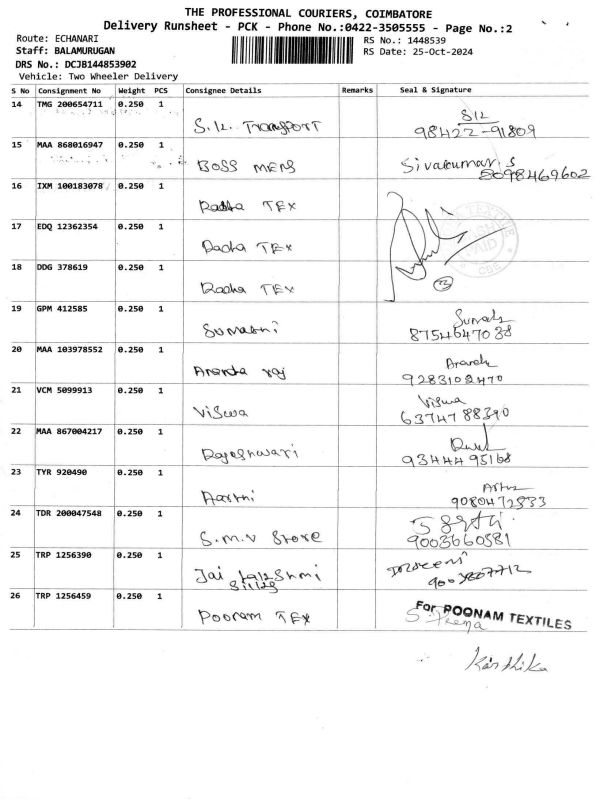 THE PROFESSIONAL COURIERS, COIMBATORE
Delivery Runsheet - PCK - Phone No.:0422-3505555 - Page No.:2
Route: ECHANARI
RS No.: 1448539
Staff: BALAMURUGAN
RS Date: 25-Oct-2024
DRS No.: DCJB144853902
Vehicle: Two Wheeler Delivery
S No Consignment No Weight PCS Consignee Details Remarks Seal & Signature
14 TMG 200654711 0.250 1
S.K. Transport
98422-91809
15 MAA 868016947 0.250 1
BOSS MENS Sivakumar S
8098469602
16 IXM 100183078 0.250 1
Radha TEX
17 EDQ 12362354 0.250 1
Radha TEX
18 DDG 378619 0.250 1
Radha TEX
19 GPM 412585 0.250 1
Sumathi
8754647038
20 MAA 103978552 0.250 1
Ananda raj
9283102470
21 VCM 5099913 0.250 1
Viswa Viswa
6374788390
22 MAA 867004217 0.250 1
Rajeshwari
9344495168
23 TYR 920490 0.250 1
Aarthi
9080472533
24 TDR 200047548 0.250 1
S.M.V Store
9003660381
25 TRP 1256390 0.250 1
Jai
26 TRP 1256459 0.250 1
Poonam TEX
For POONAM TEXTILES
Karthika